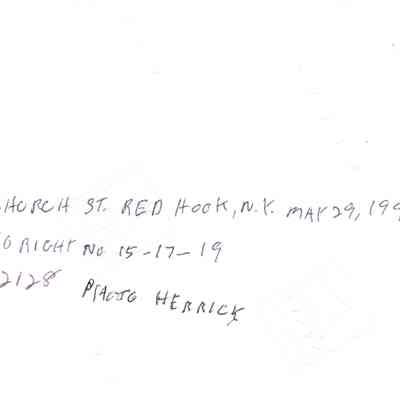 CHURCH ST. RED HOOK, N.Y. MAY 29, 199
TO RIGHT NO 15-17-19
2128 PHOTO HERRICK